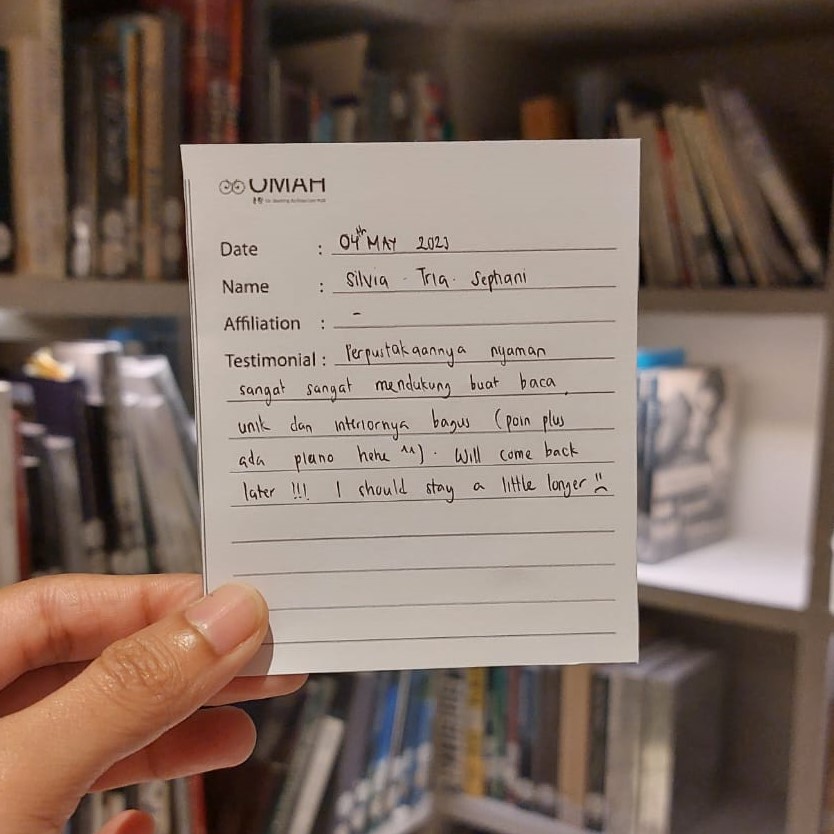 OMAH
Date : 04th MAY 2023
Name : Silvia Tria Sephani
Affiliation : -
Testimonial : Perpustakaannya nyaman
sangat sangat mendukung buat baca,
unik dan interiornya bagus (poin plus
ada piano hehe ^^). Will come back
later !!! I should stay a little longer :(